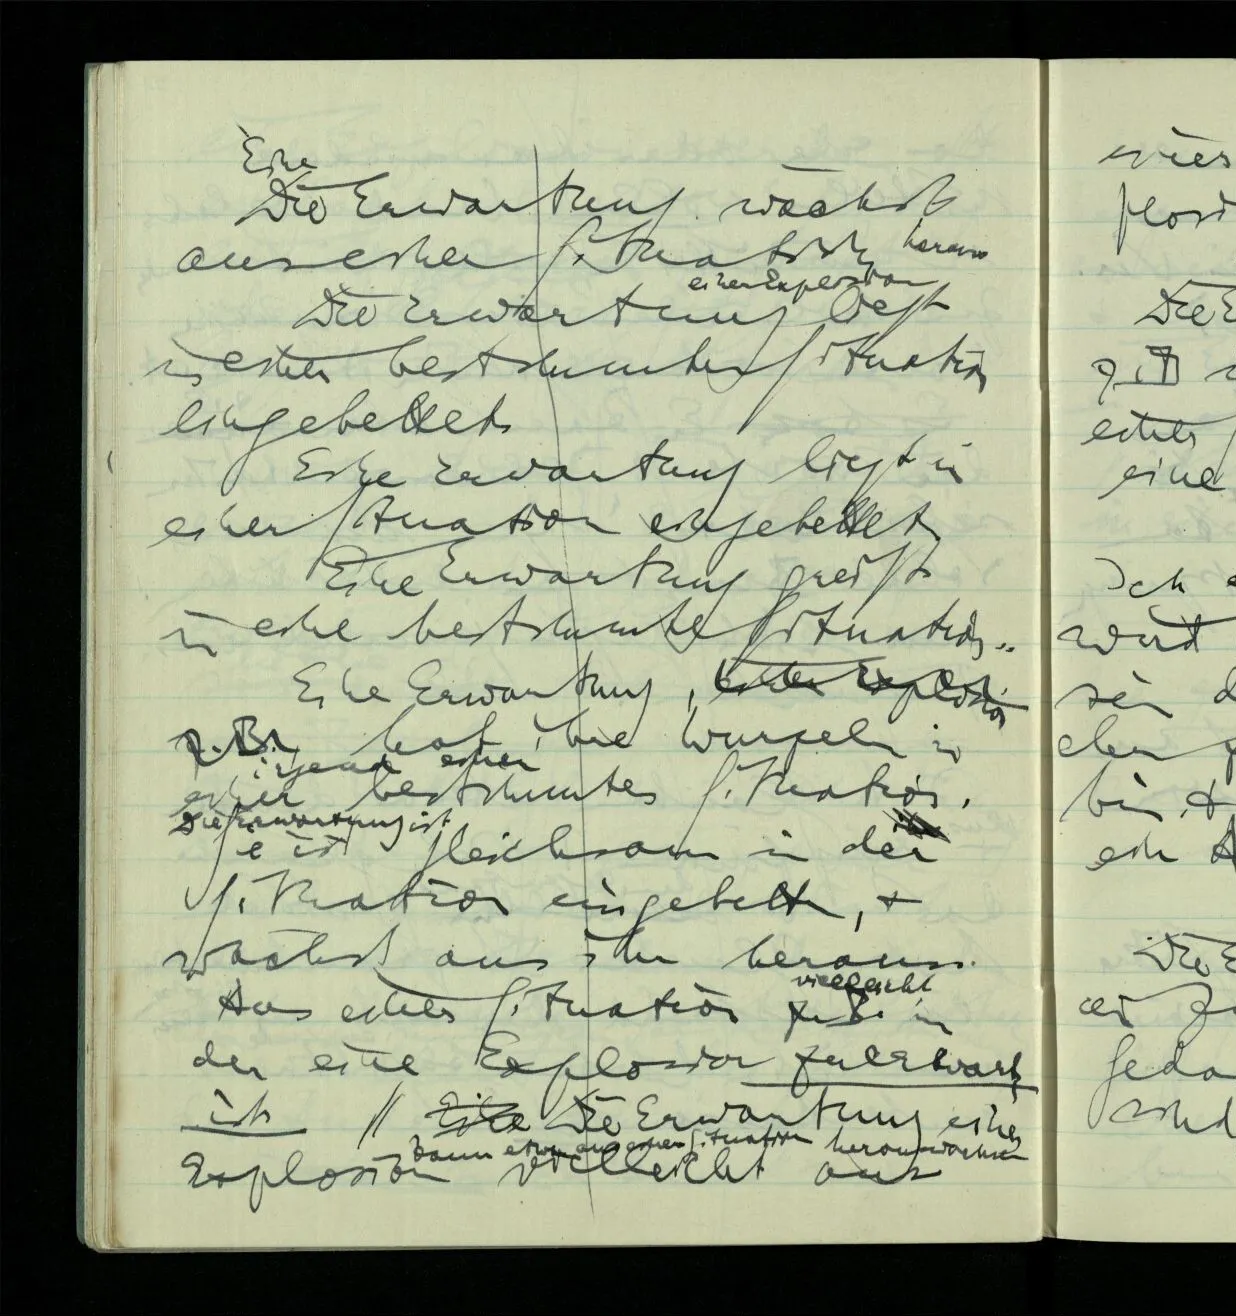 Eine
Die Erwartung wächst
aus einer Situation heraus
einer Explosion
Die Erwartung liegt
in einer bestimmten Situation
eingebettet.
Eine Erwartung liegt in
einer Situation eingebettet.
Eine Erwartung greift
in eine bestimmte Situation..
Eine Erwartung, einer Explosion
z.B., hat ihre Wurzeln in
irgend einer
einer bestimmten Situation.
Die Erwartung ist
Sie ist gleichsam in der
Situation eingebettet, +
wächst aus ihr heraus.
vielleicht
Aus einer Situation z.B. in
der eine Explosion zu erwarten
ist // Eine Die Erwartung einer
kann etwa aus einer Situation herauswachsen
Explosion vielleicht aus
vier
plosi
Die E
z.B
einer
eine
Ich
wird
sein d
bin, +
ein
Die E
sind